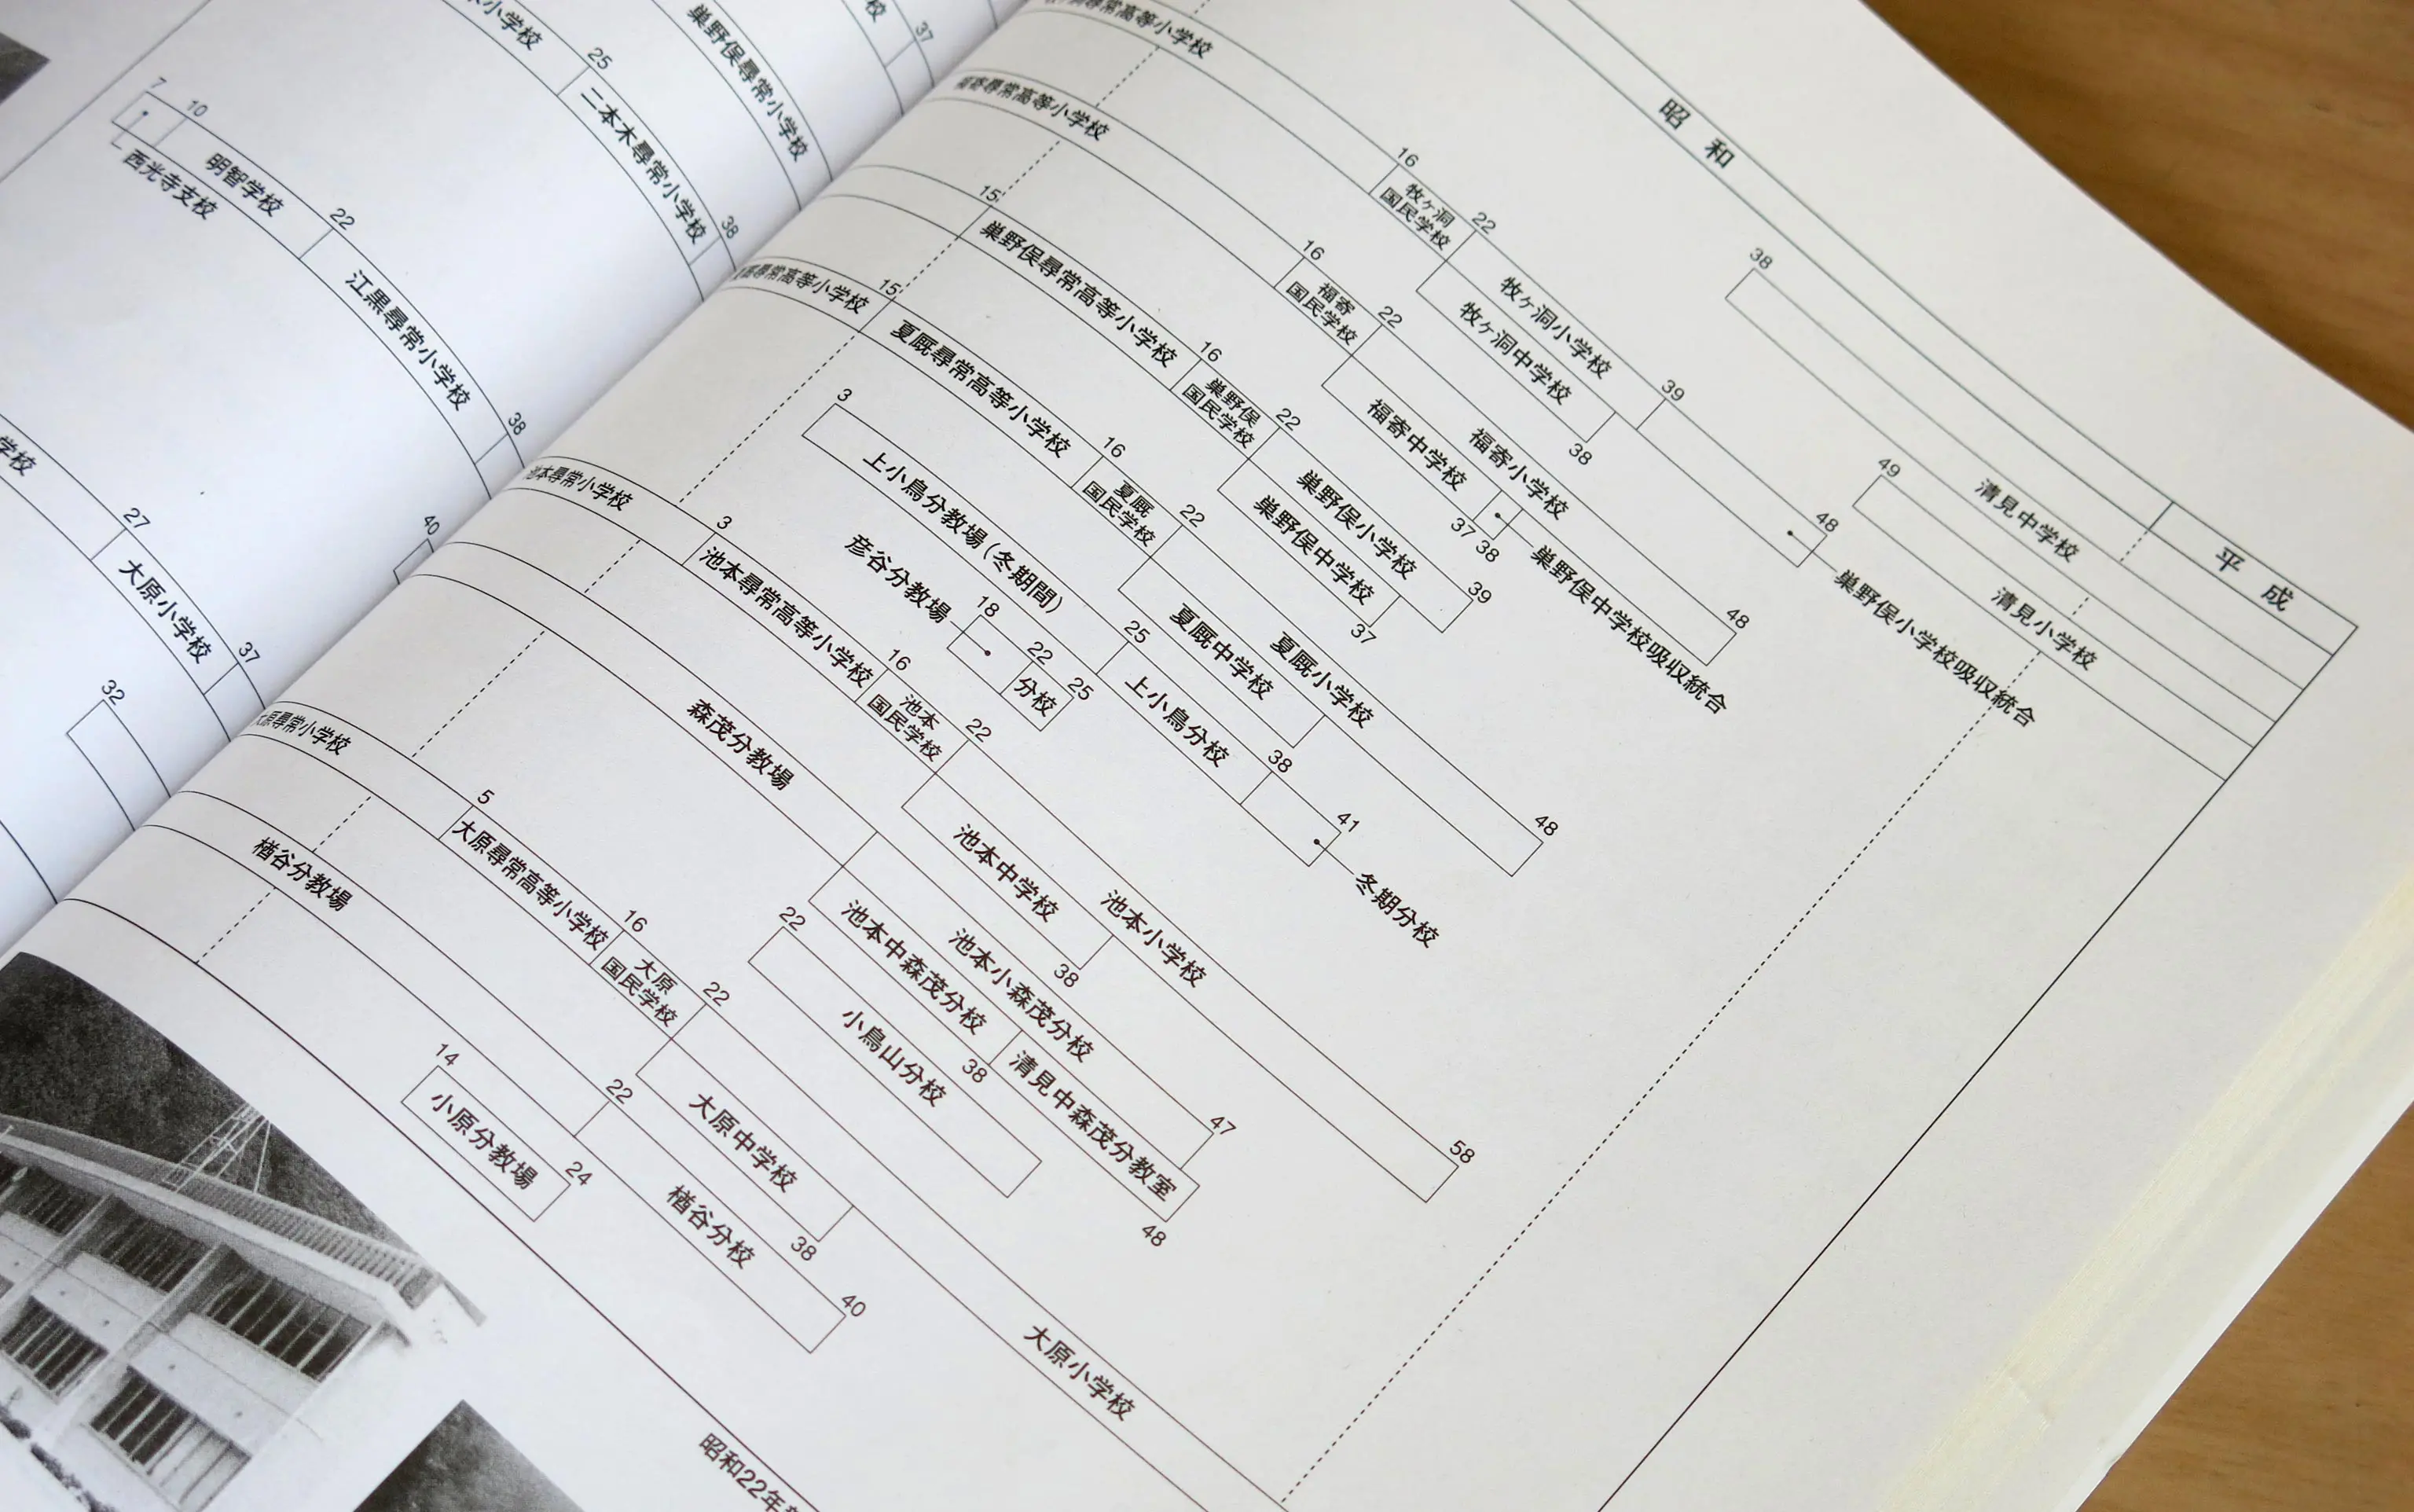 小学校
25
二本木尋常小学校
38
巣野俣尋常小学校
校
37
7
10
西光寺支校
明智学校
22
江黒尋常小学校
38
学校
27
大原小学校
37
40
32
昭和
平成
尋常高等小学校
16
牧ヶ洞
国民学校
22
牧ヶ洞小学校
39
48
牧ヶ洞中学校
38
38
清見中学校
49
清見小学校
巣野俣小学校吸収統合
尋常高等小学校
16
福寄
国民学校
22
福寄小学校
48
福寄中学校
37 38
巣野俣中学校吸収統合
15
巣野俣尋常高等小学校
16
巣野俣
国民学校
22
巣野俣小学校
39
巣野俣中学校
37
尋常高等小学校
15
夏厩尋常高等小学校
16
夏厩
国民学校
22
夏厩小学校
48
夏厩中学校
38
3
上小鳥分教場(冬期間)
25
上小鳥分校
41
冬期分校
彦谷分教場
18
22
分校
25
池本尋常小学校
3
池本尋常高等小学校
16
池本
国民学校
22
池本小学校
58
池本中学校
38
森茂分教場
池本小森茂分校
47
池本中森茂分校
38
清見中森茂分教室
48
22
小鳥山分校
大原尋常小学校
5
大原尋常高等小学校
16
大原
国民学校
22
大原小学校
大原中学校
38
楢谷分教場
22
楢谷分校
40
14
小原分教場
24
昭和22年